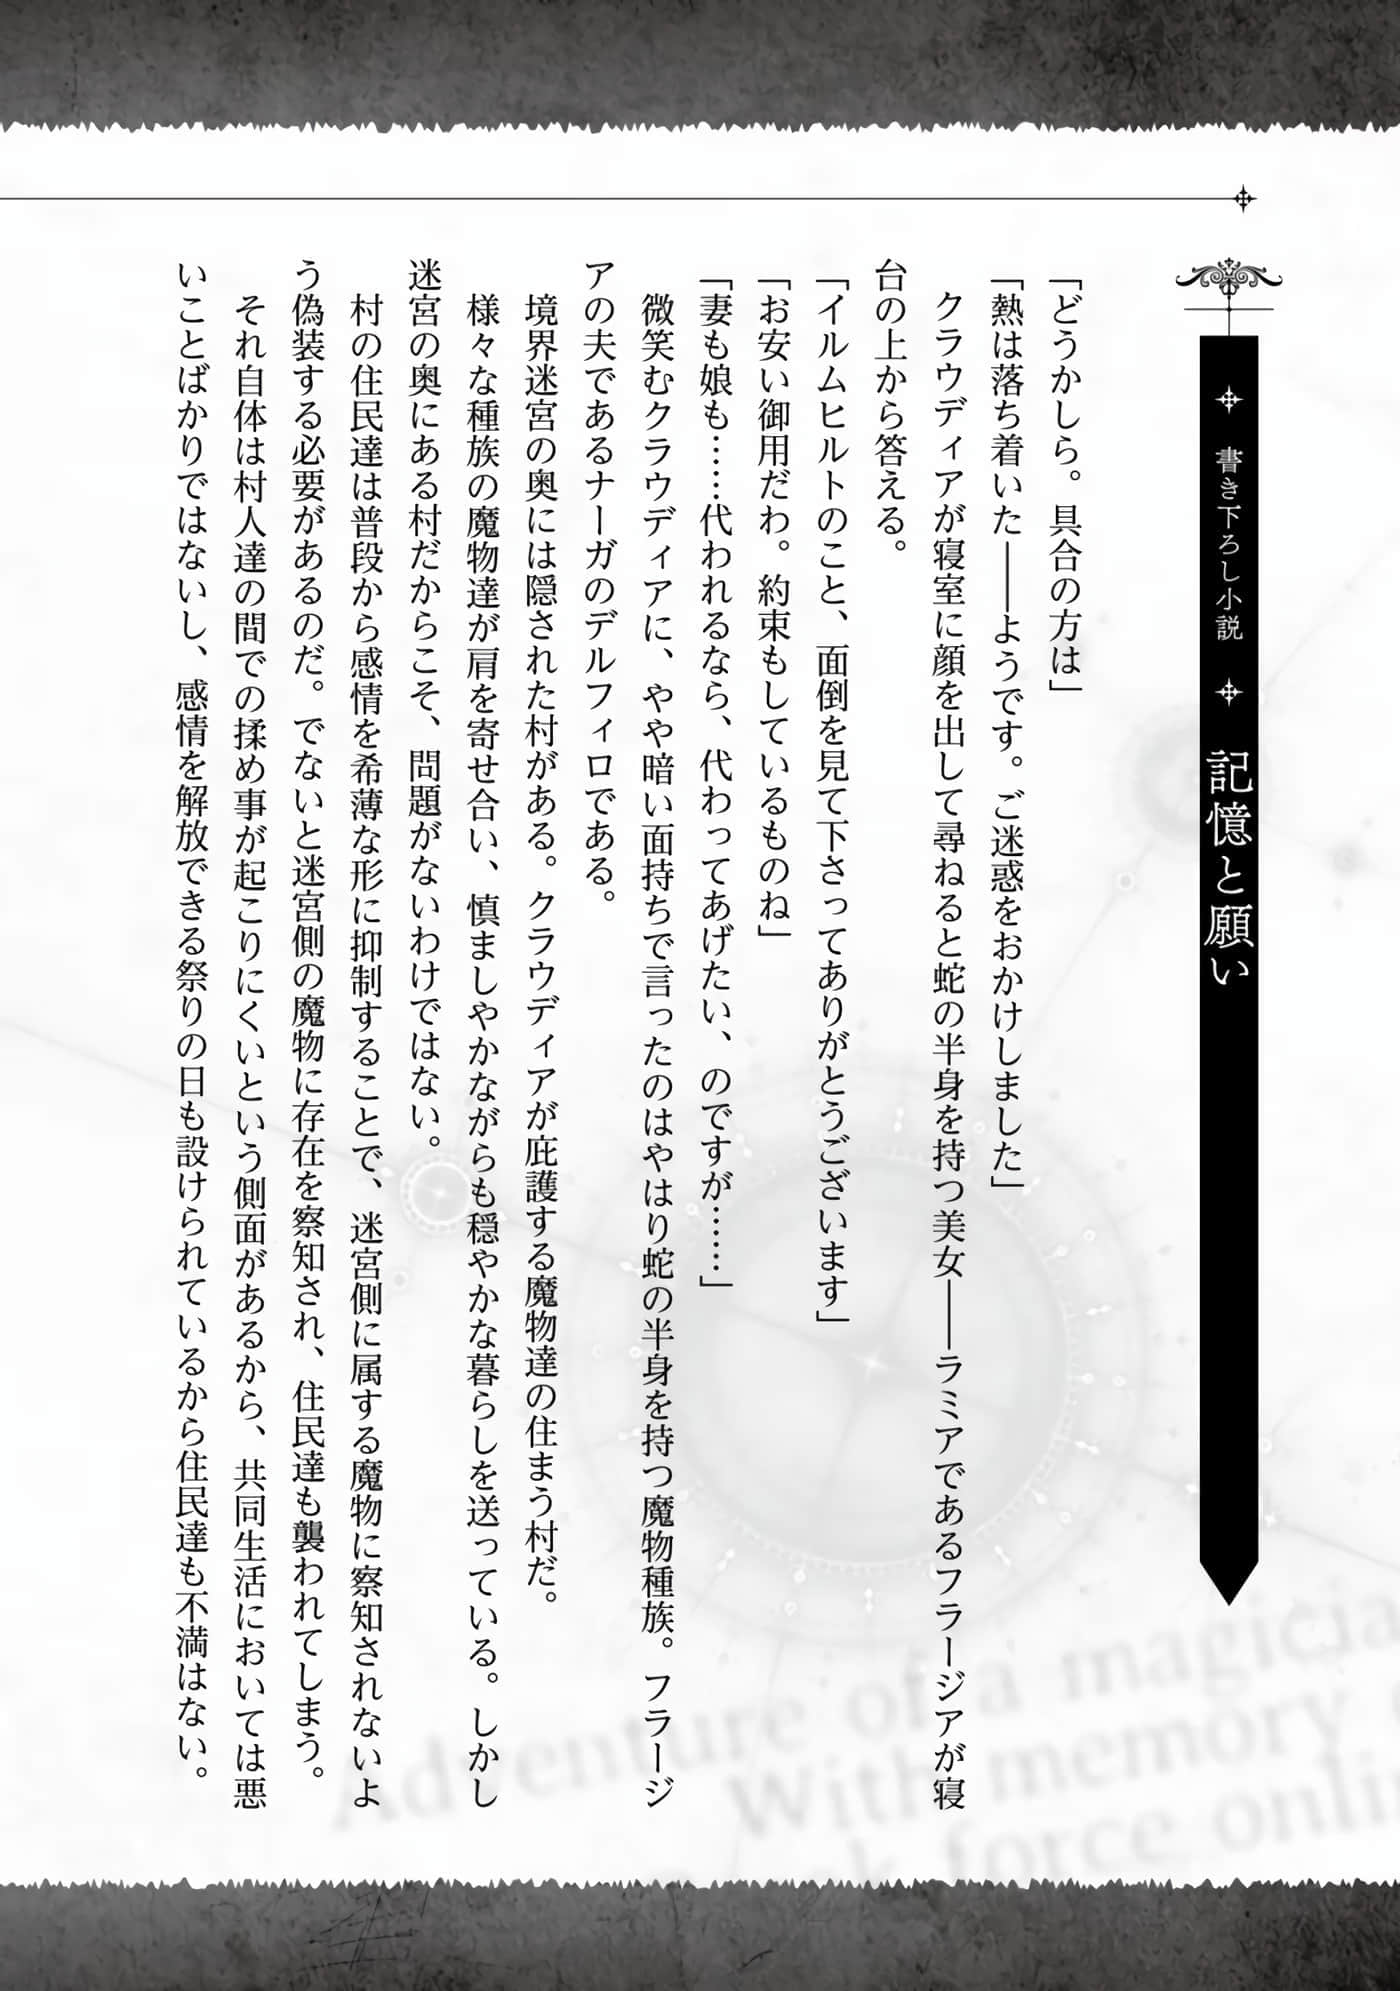 書き下ろし小説
記憶と願い
「どうかしら。具合の方は」
「熱は落ち着いた――ようです。ご迷惑をおかけしました」
クラウディアが寝室に顔を出して尋ねると蛇の半身を持つ美女――ラミアであるフラージアが寝
台の上から答える。
「イルムヒルトのこと、面倒を見て下さってありがとうございます」
「お安い御用だわ。約束もしているものね」
「妻も娘も……代われるなら、代わってあげたい、のですが……」
微笑むクラウディアに、やや暗い面持ちで言ったのはやはり蛇の半身を持つ魔物種族。フラージ
アの夫であるナーガのデルフィロである。
境界迷宮の奥には隠された村がある。クラウディアが庇護する魔物達の住まう村だ。
様々な種族の魔物達が肩を寄せ合い、慎ましやかながらも穏やかな暮らしを送っている。しかし
迷宮の奥にある村だからこそ、問題がないわけではない。
村の住民達は普段から感情を希薄な形に抑制することで、迷宮側に属する魔物に察知されないよ
う偽装する必要があるのだ。でないと迷宮側の魔物に存在を察知され、住民達も襲われてしまう。
それ自体は村人達の間での揉め事が起こりにくいという側面があるから、共同生活においては悪
いことばかりではないし、感情を解放できる祭りの日も設けられているから住民達も不満はない。
Adventure of a magicia
With memory
force onli